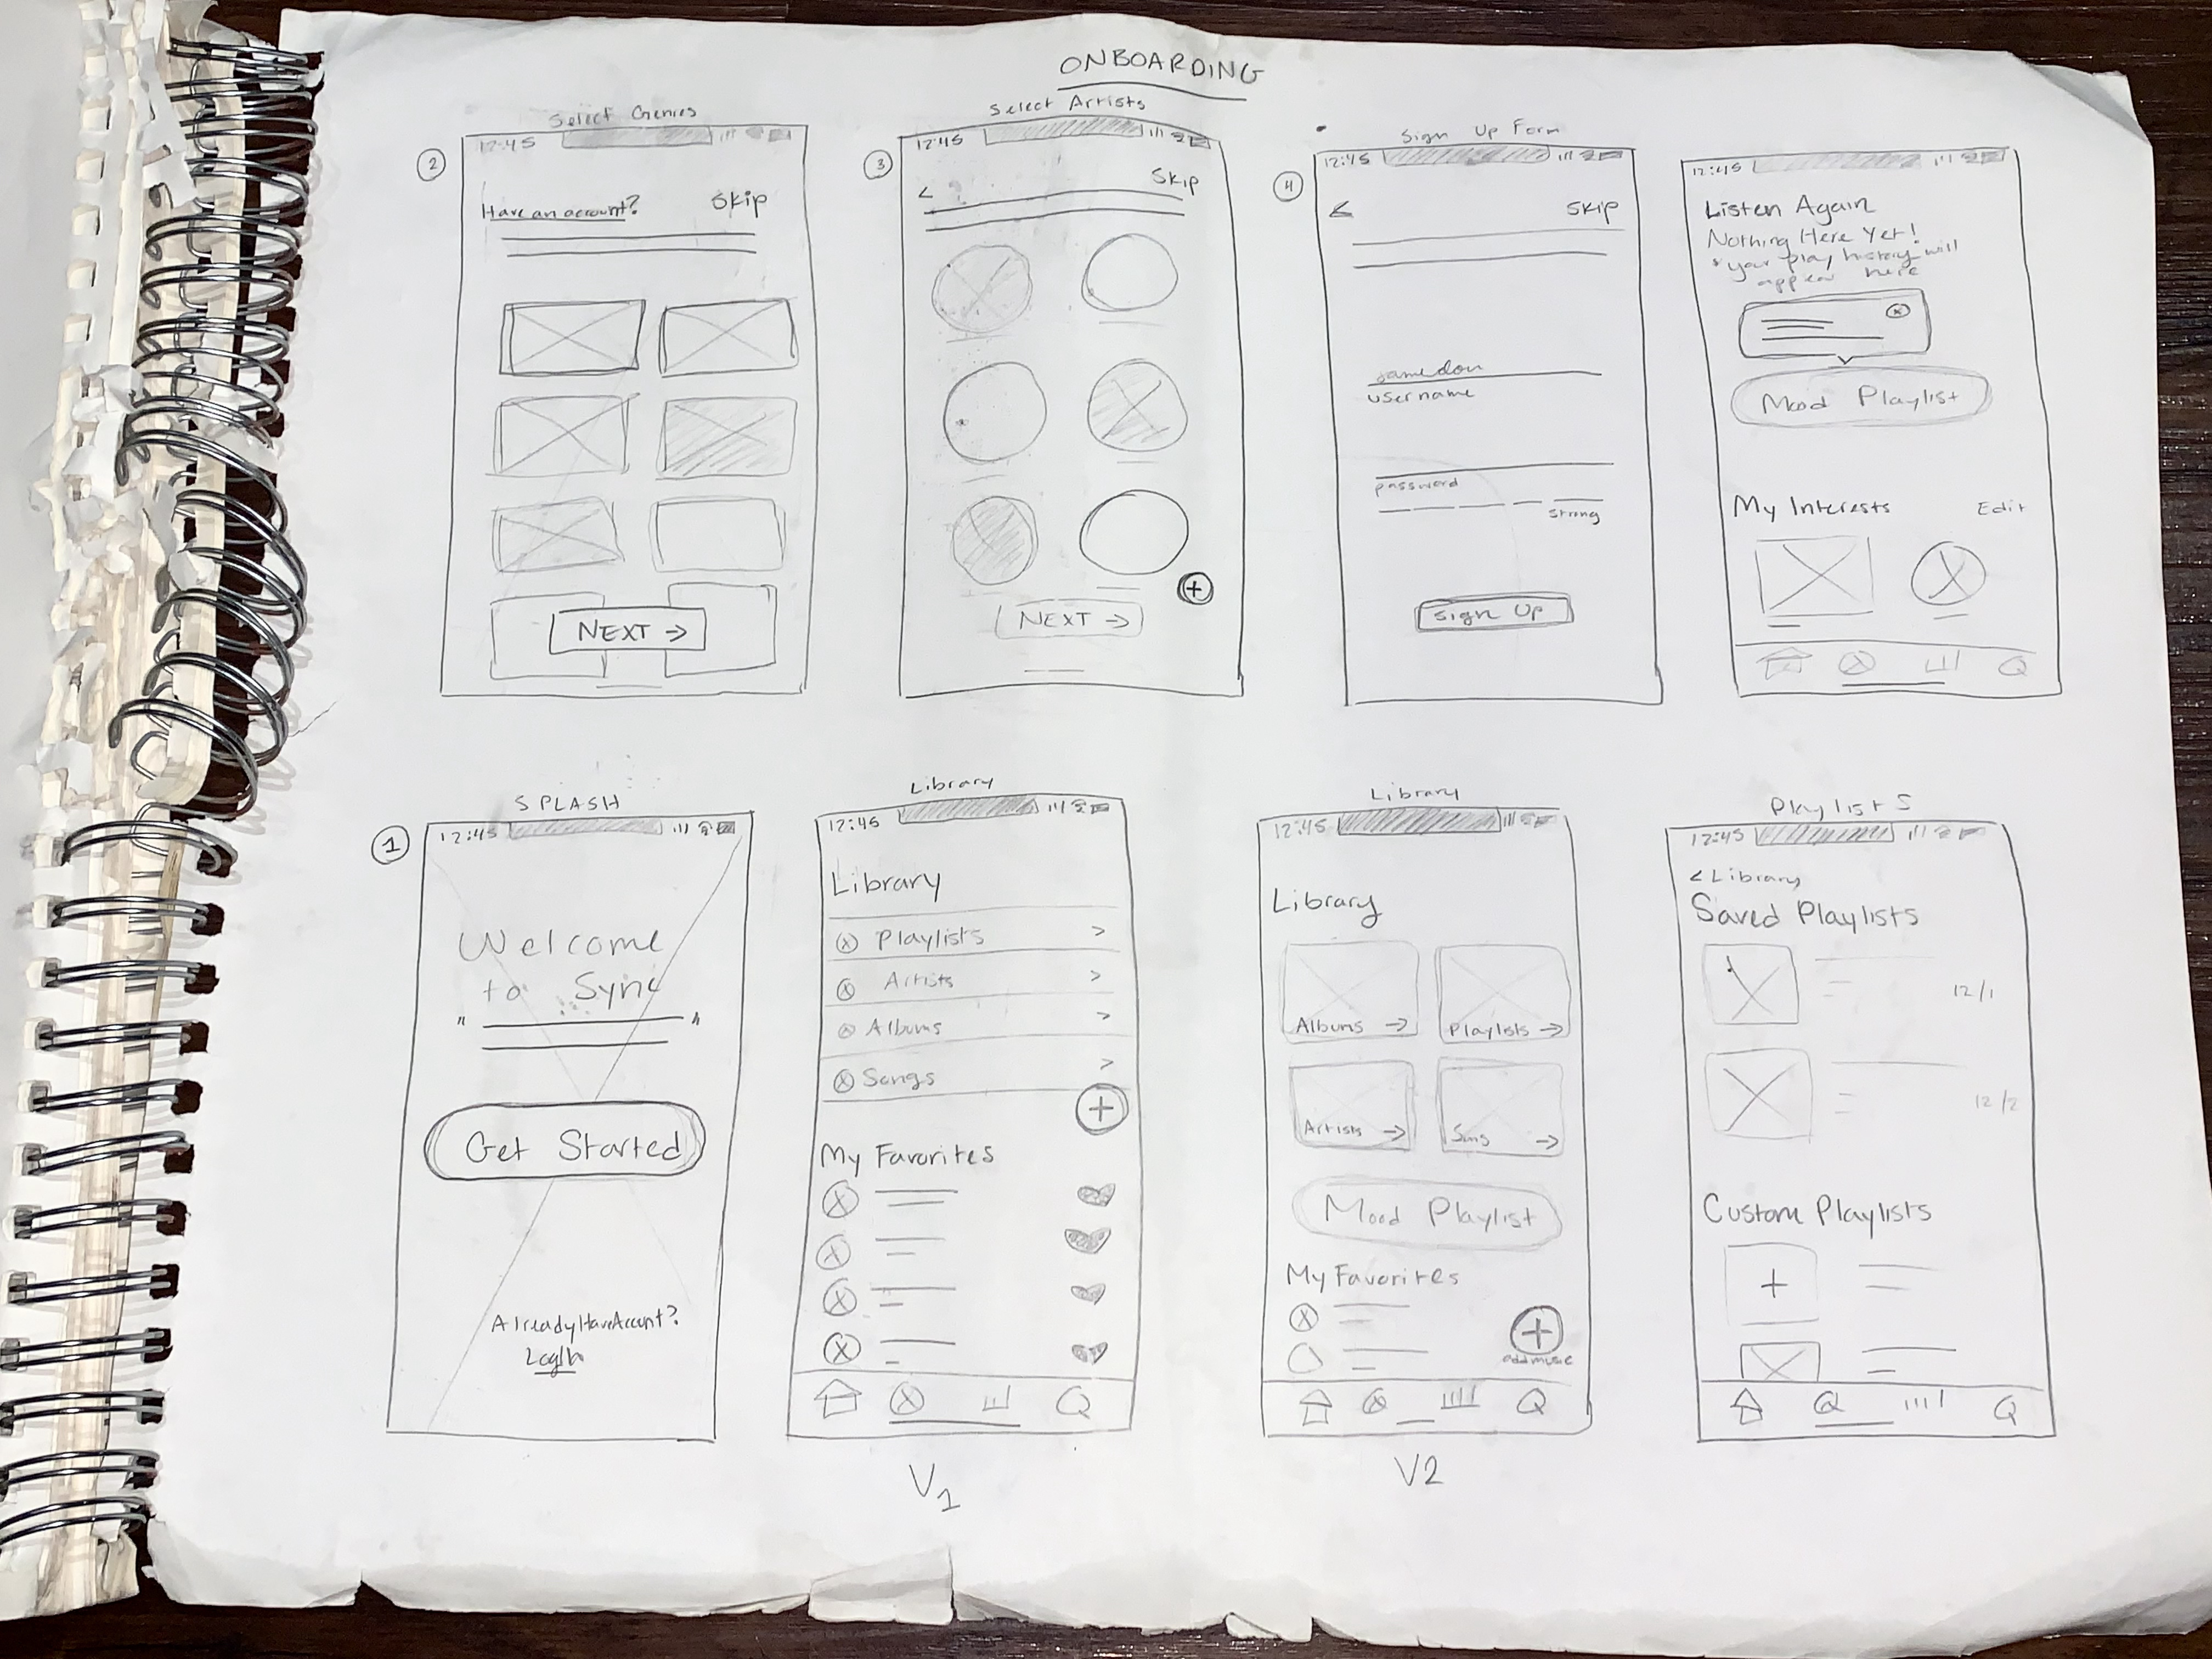 ONBOARDING
Select Genres
2
12:45
Have an account?
Skip
NEXT →
Select Artists
3
12:45
<
Skip
+
NEXT →
Sign Up Form
4
12:45
<
Skip
username
password
strong
Sign Up
12:45
Listen Again
Nothing Here Yet!
* your play history will
appear here
Mood Playlist
My Interests
Edit
SPLASH
1
12:45
Welcome
to Sync
" "
Get Started
AlreadyHaveAccount?
LogIn
Library
12:45
Library
Playlists >
Artists >
Albums >
Songs >
+
My Favorites
V1
Library
12:45
Library
Albums → Playlists →
Artists → Song →
Mood Playlist
My Favorites
+
add music
V2
Playlists
12:45
< Library
Saved Playlists
12/1
12/2
Custom Playlists
+